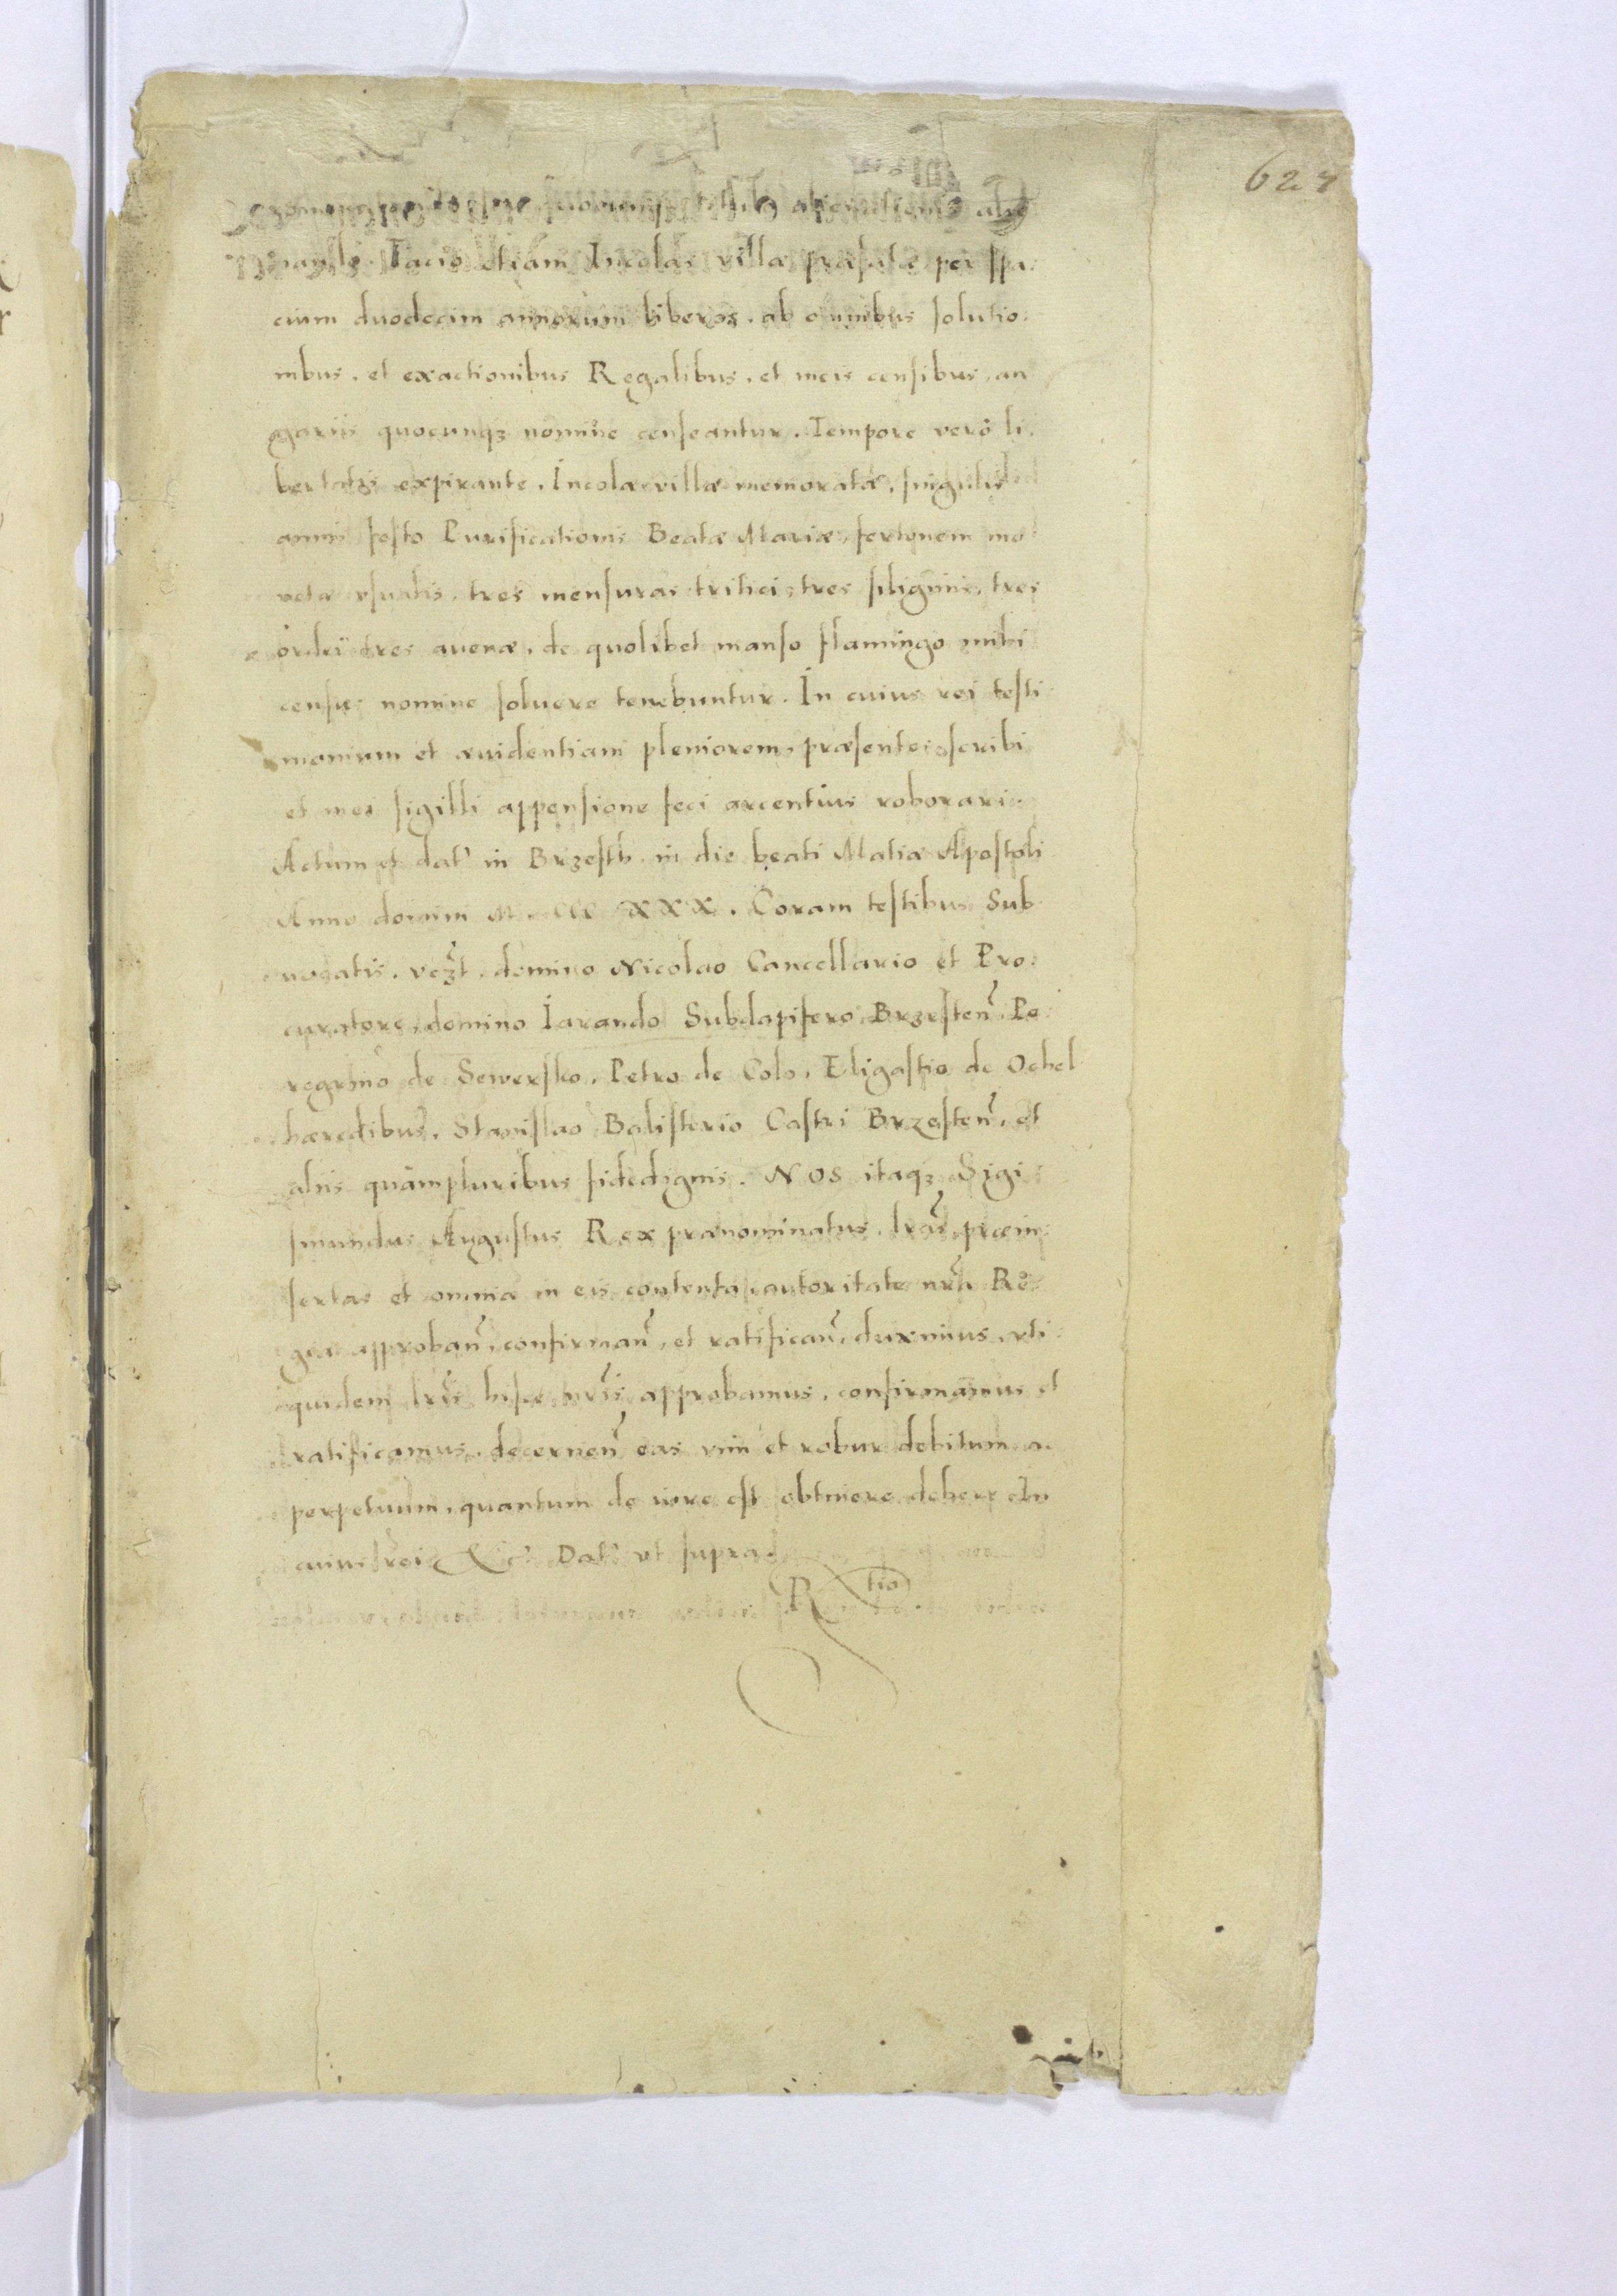 624
Facio etiam Incolas villæ præfatæ per spa:
cium duodecim annorum liberos. ab omnibus solutio:
nibus. et exactionibus Regalibus. et meis censibus, an
gariis quocunqʒ nomine censeantur. Tempore verò li:
bertatis expirante. Incolæ villæ memoratæ, singulis
annis festo Purificationis Beatæ Mariæ, fertonem mo
netæ vsualis, tres mensuras tritici, tres siliginis, tres
ordei tres auenæ. de quolibet manso flamingo mihi
census nomine soluere tenebuntur. In cuius rei testi:
monium et æuidentiam pleniorem, præsentes scribi
et mei sigilli appensione feci arcentius roborari.
Actum et dat' in Brzesth in die beati Matiæ Apostoli
Anno domini M. CCC XXX. Coram testibus Sub:
notatis. vczt. domino Nicolao Cancellario et Pro:
curatore, domino Iarando Subdapifero Brzesten̄ Pe:
regrino de Sewersko. Petro de Colo. Eligastio de Ochel
hæredibus. Stanislao Balisterio Castri Brzesten̄, et
aliis quàmpluribus fidedignis. NOS itaqʒ Sigi:
smundus Augustus Rex prænominatus. lrās præin:
sertas et omnia in eis contenta, autoritate nrā Re:
gia approban̄, confirman̄, et ratifican̄, duximus, vti:
quidem lrīs hisce nrīs approbamus, confirmamus et
ratificamus. decernen̄ eas vim et robur debitum a:
perpetuum, quantum de iure est obtinere debere In
cuius rei &c. Dat' vt supra
Rtio